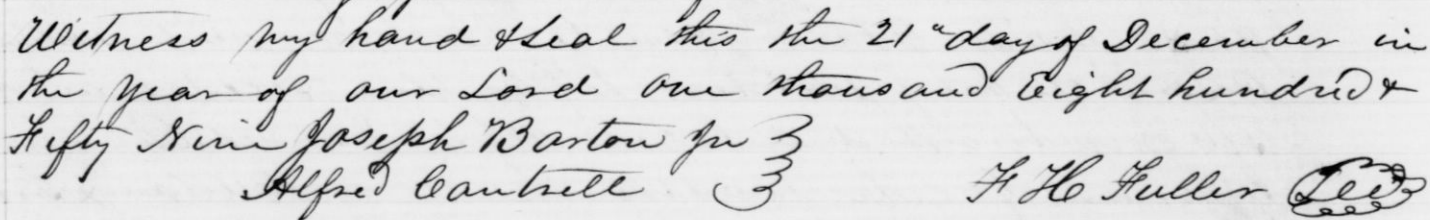 Witness my hand & Seal this the 21" day of December in
the year of our Lord one thousand Eight hundred &
Fifty Nine Joseph Barton Jr
Alfred Cantrell F H Fuller